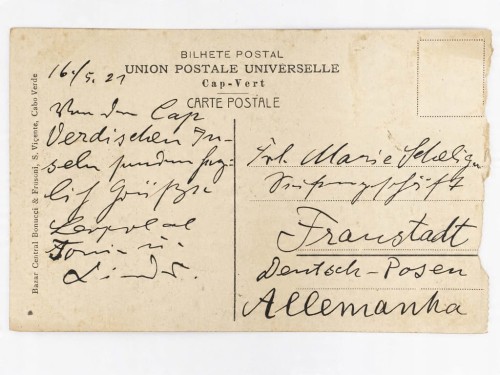 BILHETE POSTAL
UNION POSTALE UNIVERSELLE
Cap-Vert
CARTE POSTALE
Bazar Central Bonucci & Frusoni, S. Viçente, Cabo Verde
16./5. 21
Von den Cap
Verdischen In-
seln senden herz-
lich Grüße
Leopold
Toni u.
Frl. Marie
Fraustadt
Deutsch-Posen
Allemanha